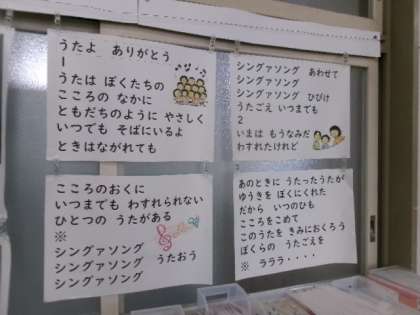 うたよ　ありがとう
1
うたは ぼくたちの
こころの なかに
ともだちのように やさしく
いつでも そばにいるよ
ときはながれても
こころのおくに
いつまでも わすれられない
ひとつの うたがある
※
シングァソング
シングァソング　うたおう
シングァソング
シングァソング　あわせて
シングァソング
シングァソング　ひびけ
うたごえ いつまでも
2
いまは もうなみだ
わすれたけれど
あのときに うたったうたが
ゆうきを ぼくにくれた
だから　いつのひも
こころをこめて
このうたを きみにおくろう
ぼくらの　うたごえを
※　ラララ・・・・